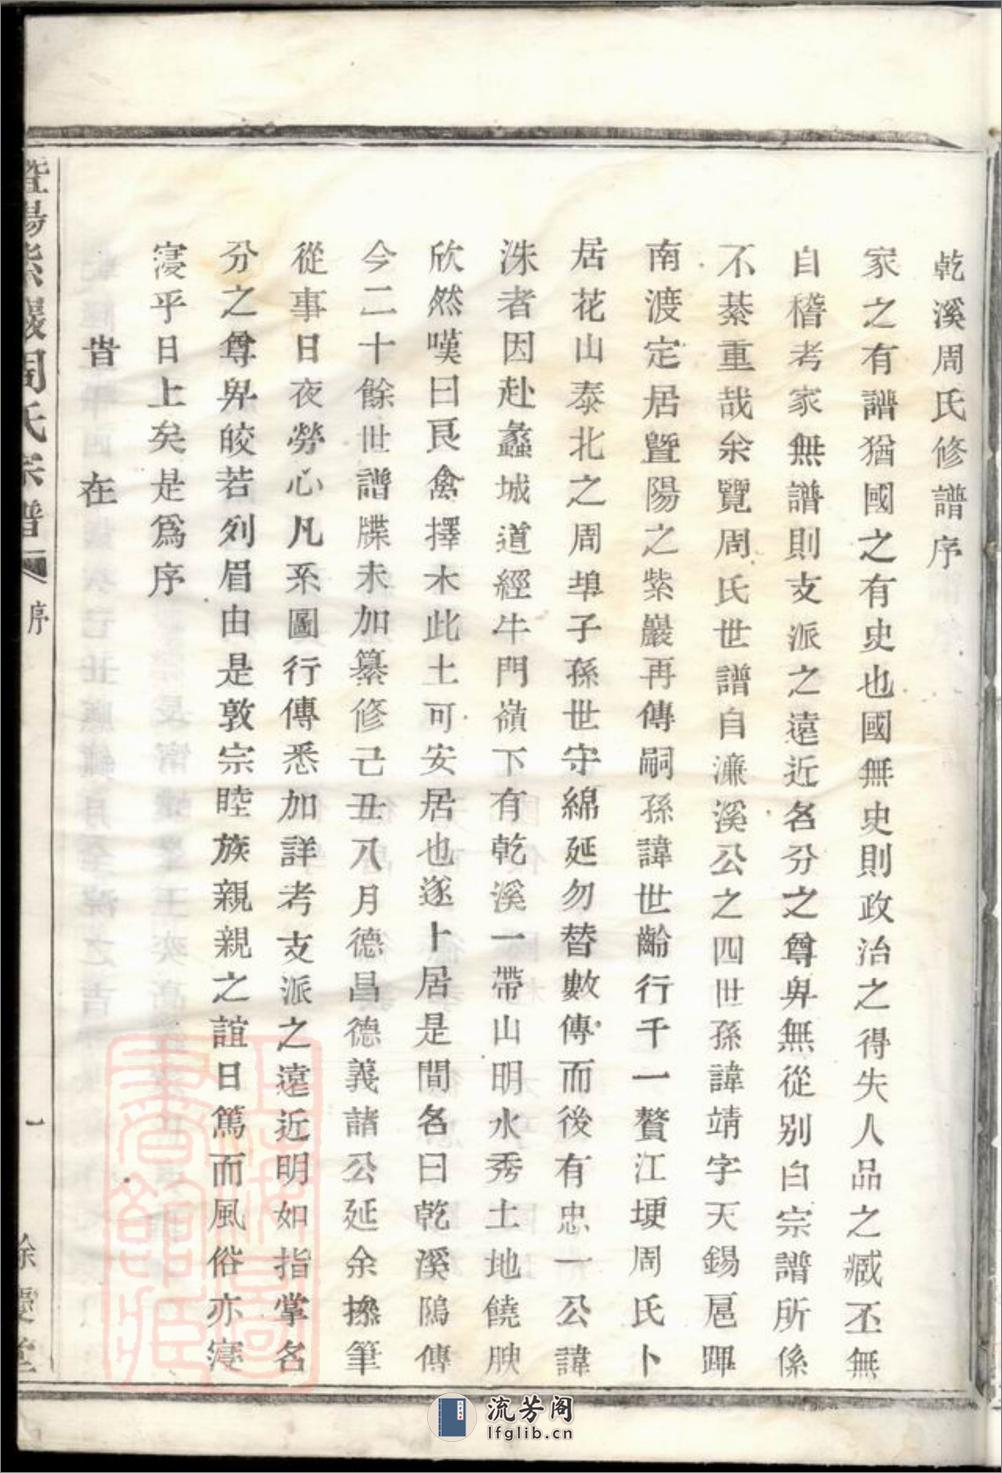 乾溪周氏修譜序
家之有譜猶國之有史也國無史則政治之得失人品之臧丕無
自稽考家無譜則支派之遠近名分之尊卑無從別白宗譜所係
不綦重哉余覽周氏世譜自濂溪公之四世孫諱靖字天錫扈蹕
南渡定居曁陽之紫巖再傳嗣孫諱世齡行千一贅江埂周氏卜
居花山泰北之周埠子孫世守綿延勿替數傳而後有忠一公諱
洙者因赴蠡城道經牛門嶺下有乾溪一帶山明水秀土地饒腴
欣然嘆曰良禽擇木此土可安居也遂卜居是間名曰乾溪隝傳
今二十餘世譜牒未加纂修己丑八月德昌德義諸公延余摻筆
從事日夜勞心凡系圖行傳悉加詳考支派之遠近明如指掌名
分之尊卑皎若列眉由是敦宗睦族親親之誼日篤而風俗亦寖
寖乎日上矣是爲序
旹在
暨陽紫巖周氏宗譜 序 一 餘慶堂
流芳阁
lfglib.cn